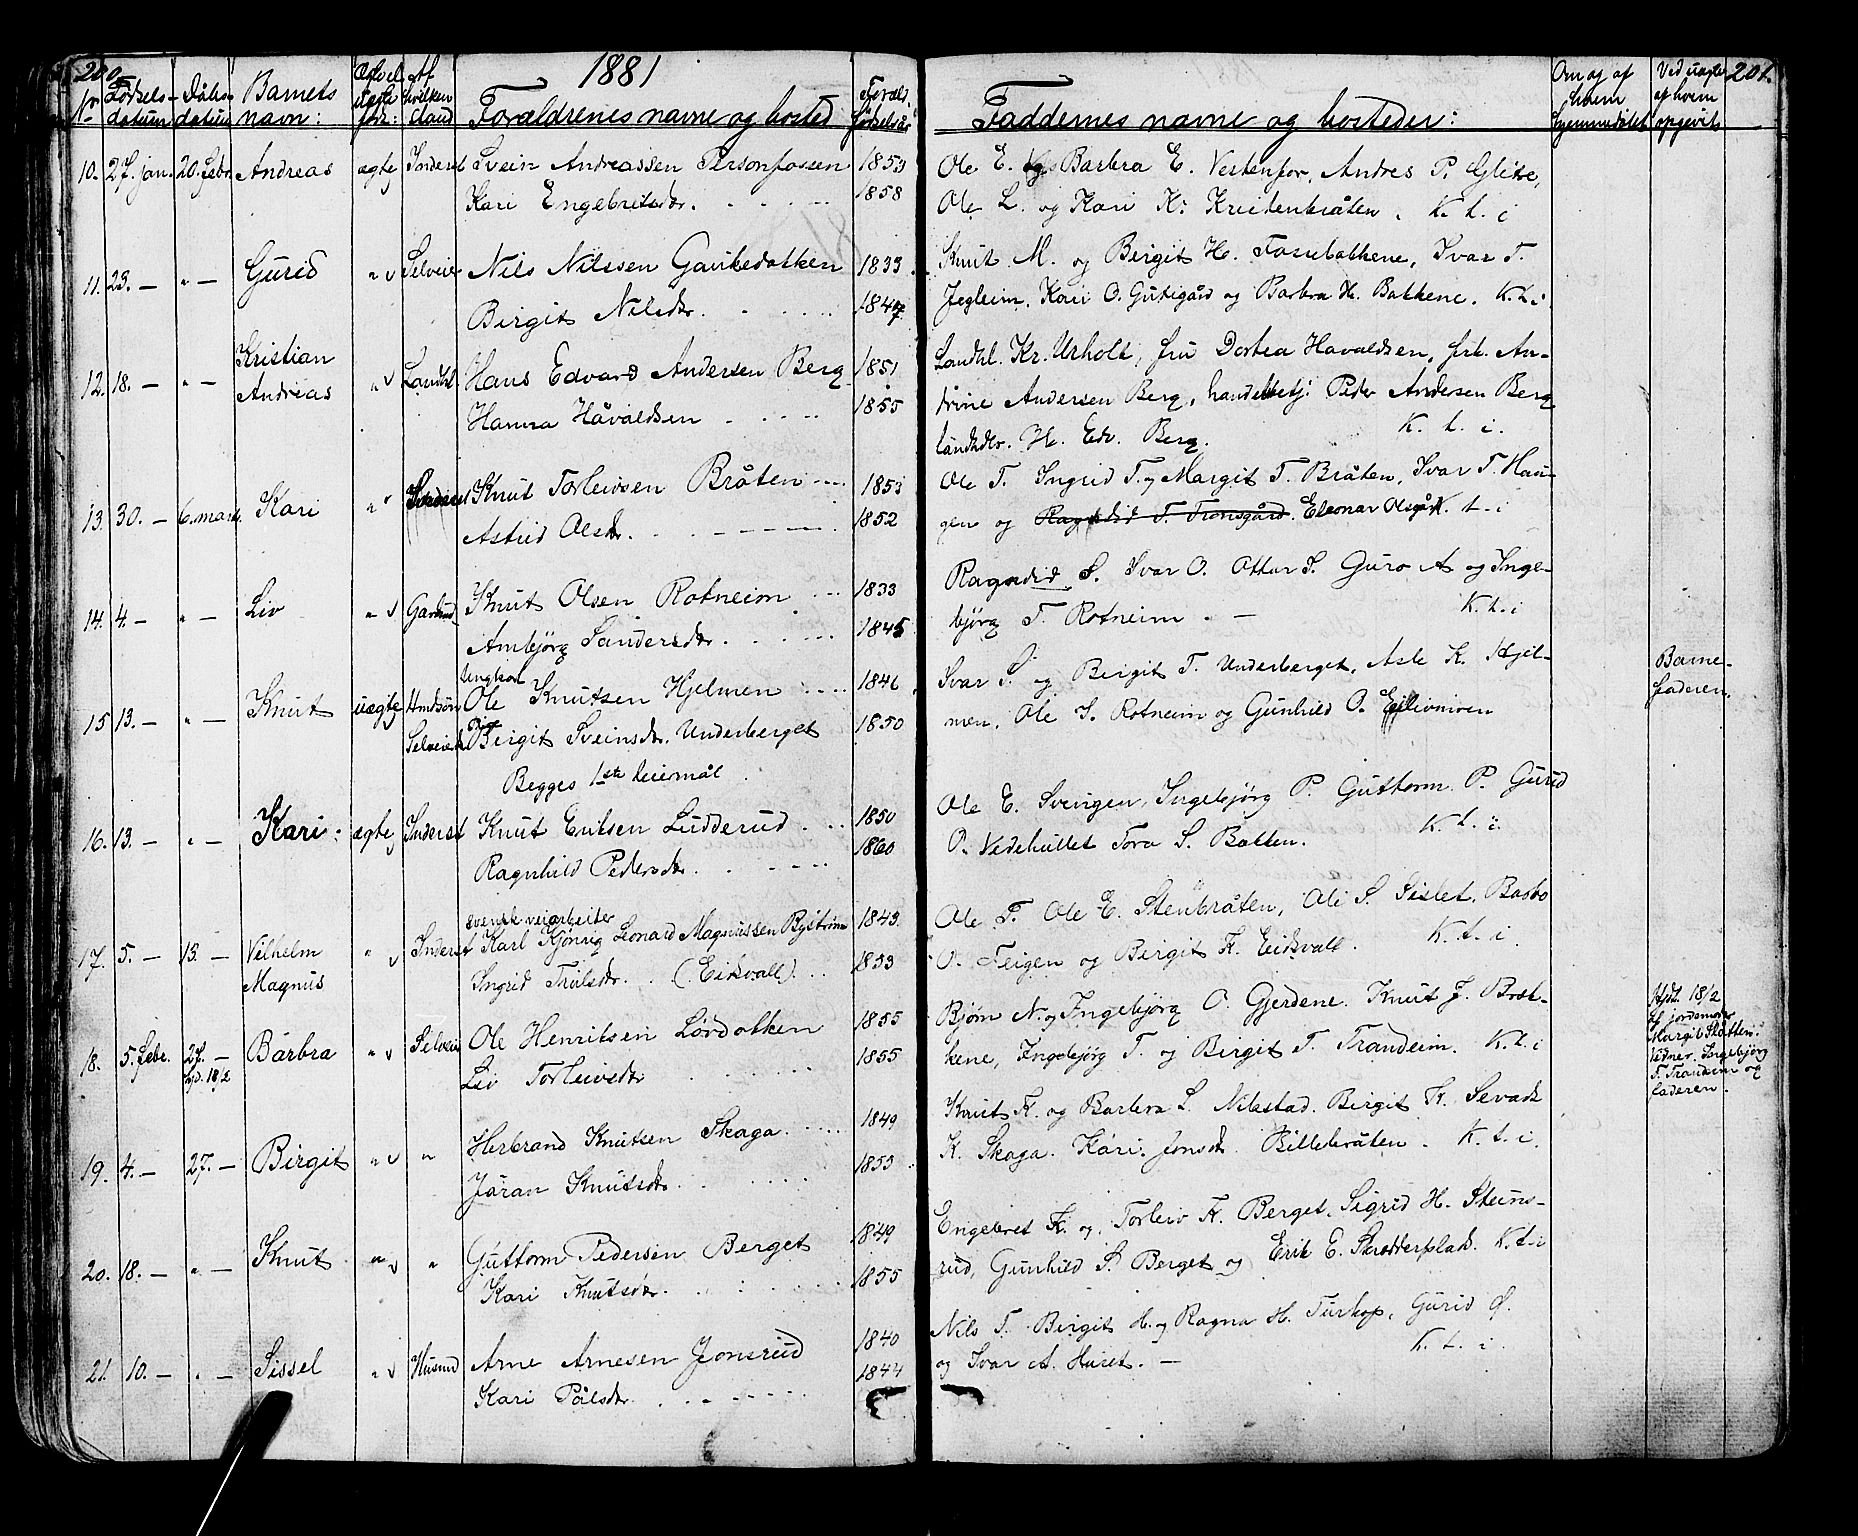 200.
1881
Nr Fødsels- datum Dåbs- datum Barnets navn: Ægte el. uægte før: Af hvilken stand Forældrenes navne og bosted Foræld. fødselsår
10. 27. jan. 20. febr. Andreas ægte Inderst Svein Andreassen Personfossen 1853
Kari Engebretsdr. 1858
11. 23. — " — Gurid " Selveier Nils Nilssen Gaukedokken 1833
Birgit Nilsdr. 1847
12. 18. — " — Kristian Andreas " Landhl. Hans Edvard Andersen Berg 1851
Hanna Håvaldsen 1855
13. 30. — 6. marts. Kari " Inderst Knut Torleivsen Bråten 1853
Astrid Olsdr. 1852
14. 4. — " — Liv " Gardbrud Knut Olsen Rotneim 1833
Ambjörg Sandersdr. 1845
15 13. — " — Knut uægte Ungkarl Ole Knutsen Hjelmen 1846
Selveierd. Pige Birgit Sveinsdr. Underberget 1850
Begges 1ste leiermål
16. 13. — " — Kari: ægte Inderst Knut Eriksen Ludderud 1850
Ragnhild Pedersdr. 1860
svensk veiarbeiter
17. 5. — 13. — Vilhelm Magnus " Inderst Karl Leonard Magnussen Byström 1843
Ingrid Trulsdr. (Eikvall) 1853
18. 5. febr. 27. — hjd. 18/2 Barbra " Selveier Ole Henriksen Lördokken 1855
Liv Torleivsdr 1855
19. 4. — 27. — Birgit " " Herbrand Knutsen Skaga 1849
Jöran Knutsdr. 1853
20. 18. — " — Knut " " Guttorm Pedersen Berget 1849
Kari Knutsdr. 1855
21. 10. — " — Sissel " Husmd Arne Arnesen Jonsrud 1840
Kari Pålsdr. 1844
201.
Faddernes navne og bosteder: Om og af hvem hjemmedöbt Ved uægte af hvem opgivet
Ole E. og Barbra E. Vestenfor, Andres P. Glitre,
Ole L. og Kari K. Kristenbråten. K. t. i
Knut M. og Birgit H. Fosubakkene, Ivar T.
Jegleim, Kari O. Gutigård og Barbra H. Bakkene. K. t. i
Landhl. Kr. Urholt, fru Dortea Havaldsen, frk. An-
trine Andersen Berg, handelsbetj. Peder Andersen Berg
landhdlr. H. Edv. Berg. K. t. i.
Ole T. Ingrid T. og Margit T. Bråten, Ivar T. Hau-
gen og Ragndid T. Tronsgård. Eleonar Olsgård K. t. i
Ragndid S. Ivar O. Ottar S. Guro A og Inge-
björg T. Rotneim. — K. t. i
Ivar S. og Birgit T. Underberget, Asle K. Hjel- Barne-
men, Ole S. Rotneim og Gunhild O. faderen.
Ole E. Svengen, Ingebjörg P. Guttorm P. Gurid
O. Vedehullet Tora S. Bakken. K. t. i.
Ole T. Ole E. Stenbråten, Ole S. Sislet, Barbo
O. Feigen og Birgit K. Eikvall. K. t. i.
Bjørn N. og Ingebjörg O. Gjerdene. Knut J. Brek-
kene, Ingebjörg T. og Birgit T. Trandeim. K. t. i
Hjdt. 18/2
af jordemoder
Margit Skatten
vidner. Ingebjörg
T. Trandeim og
faderen.
Knut K. og Barbra L. Nilsstad. Birgit K. Sevads
K. Skaga. Kari Jonsd. Billebråten. K. t. i.
Engebret K. og Torleiv K. Berget, Sigrid H. Stens-
rud, Gunhild S. Berget og Erik E. Skredderplads. K. t. i
Nils T. Birgit H. og Ragna H. Turkop, Gurid Ø.
og Ivar A. Huset. — K. t. i.